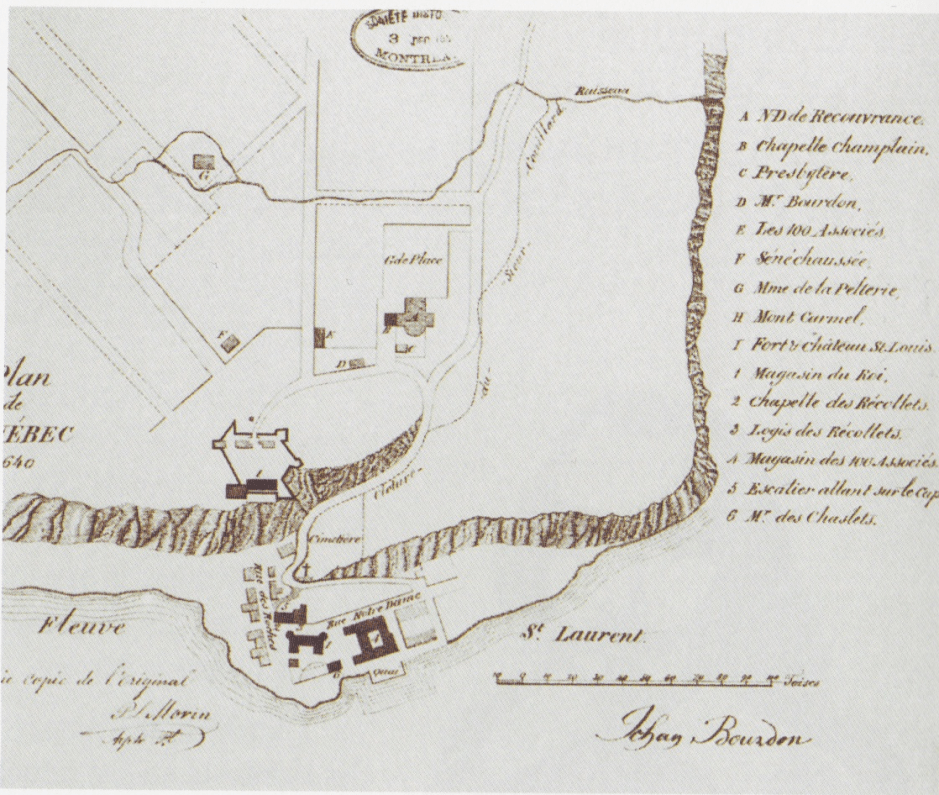 SOCIÉTÉ HISTO
3
MONTREAL
Ruisseau
Couillard
Sieur
du
Cloture
G
Gde Place
A
B
C
D
E
F
A ND de Recouvrance.
B Chapelle Champlain,
C Presbytère,
D Mr Bourdon,
E Les 100 Associés
F Sénéchaussée,
G Mme de la Pelterie,
H Mont Carmel,
I Fort & Château St. Louis.
1 Magasin du Roi,
2 Chapelle des Récollets.
3 Logis des Récollets.
4 Magasin des 100 Associés.
5 Escalier allant sur le Cap
6 Mr des Chaslets.
lan
de
ÉBEC
640
Cimetiere
Rue Notre Dame
Quai
Fleuve
St Laurent.
Toises
ie copie de l'original
P L Morin
Jehan Bourdon